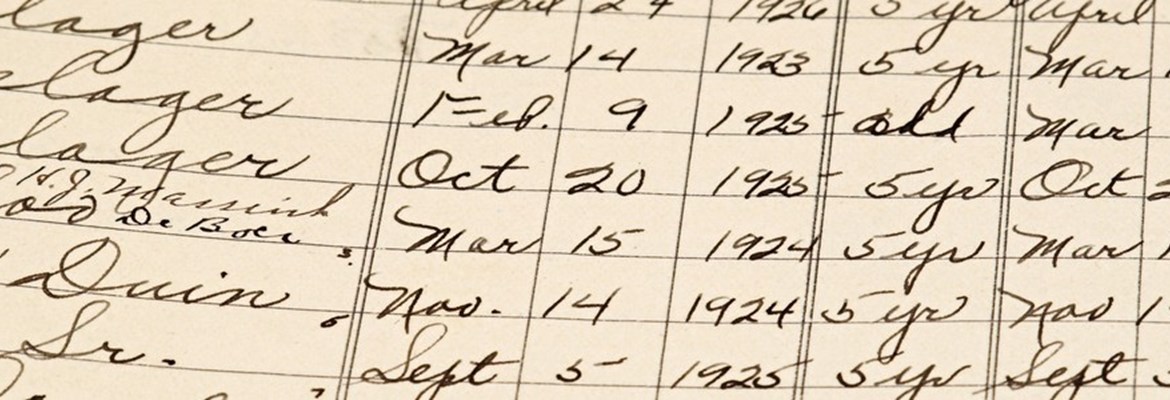 lager April 24 1926 5 yr April
slager Mar 14 1923 5 yr Mar
lager Feb. 9 1925 add Mar
H.J. Massink Oct 20 1925 5yr Oct 2
De Boer 5. Mar 15 1924 5yr Mar 1
Duin 6 Nov. 14 1924 5 yr Nov 1
Sr. 7 Sept 5 1925 5yr Sept 5